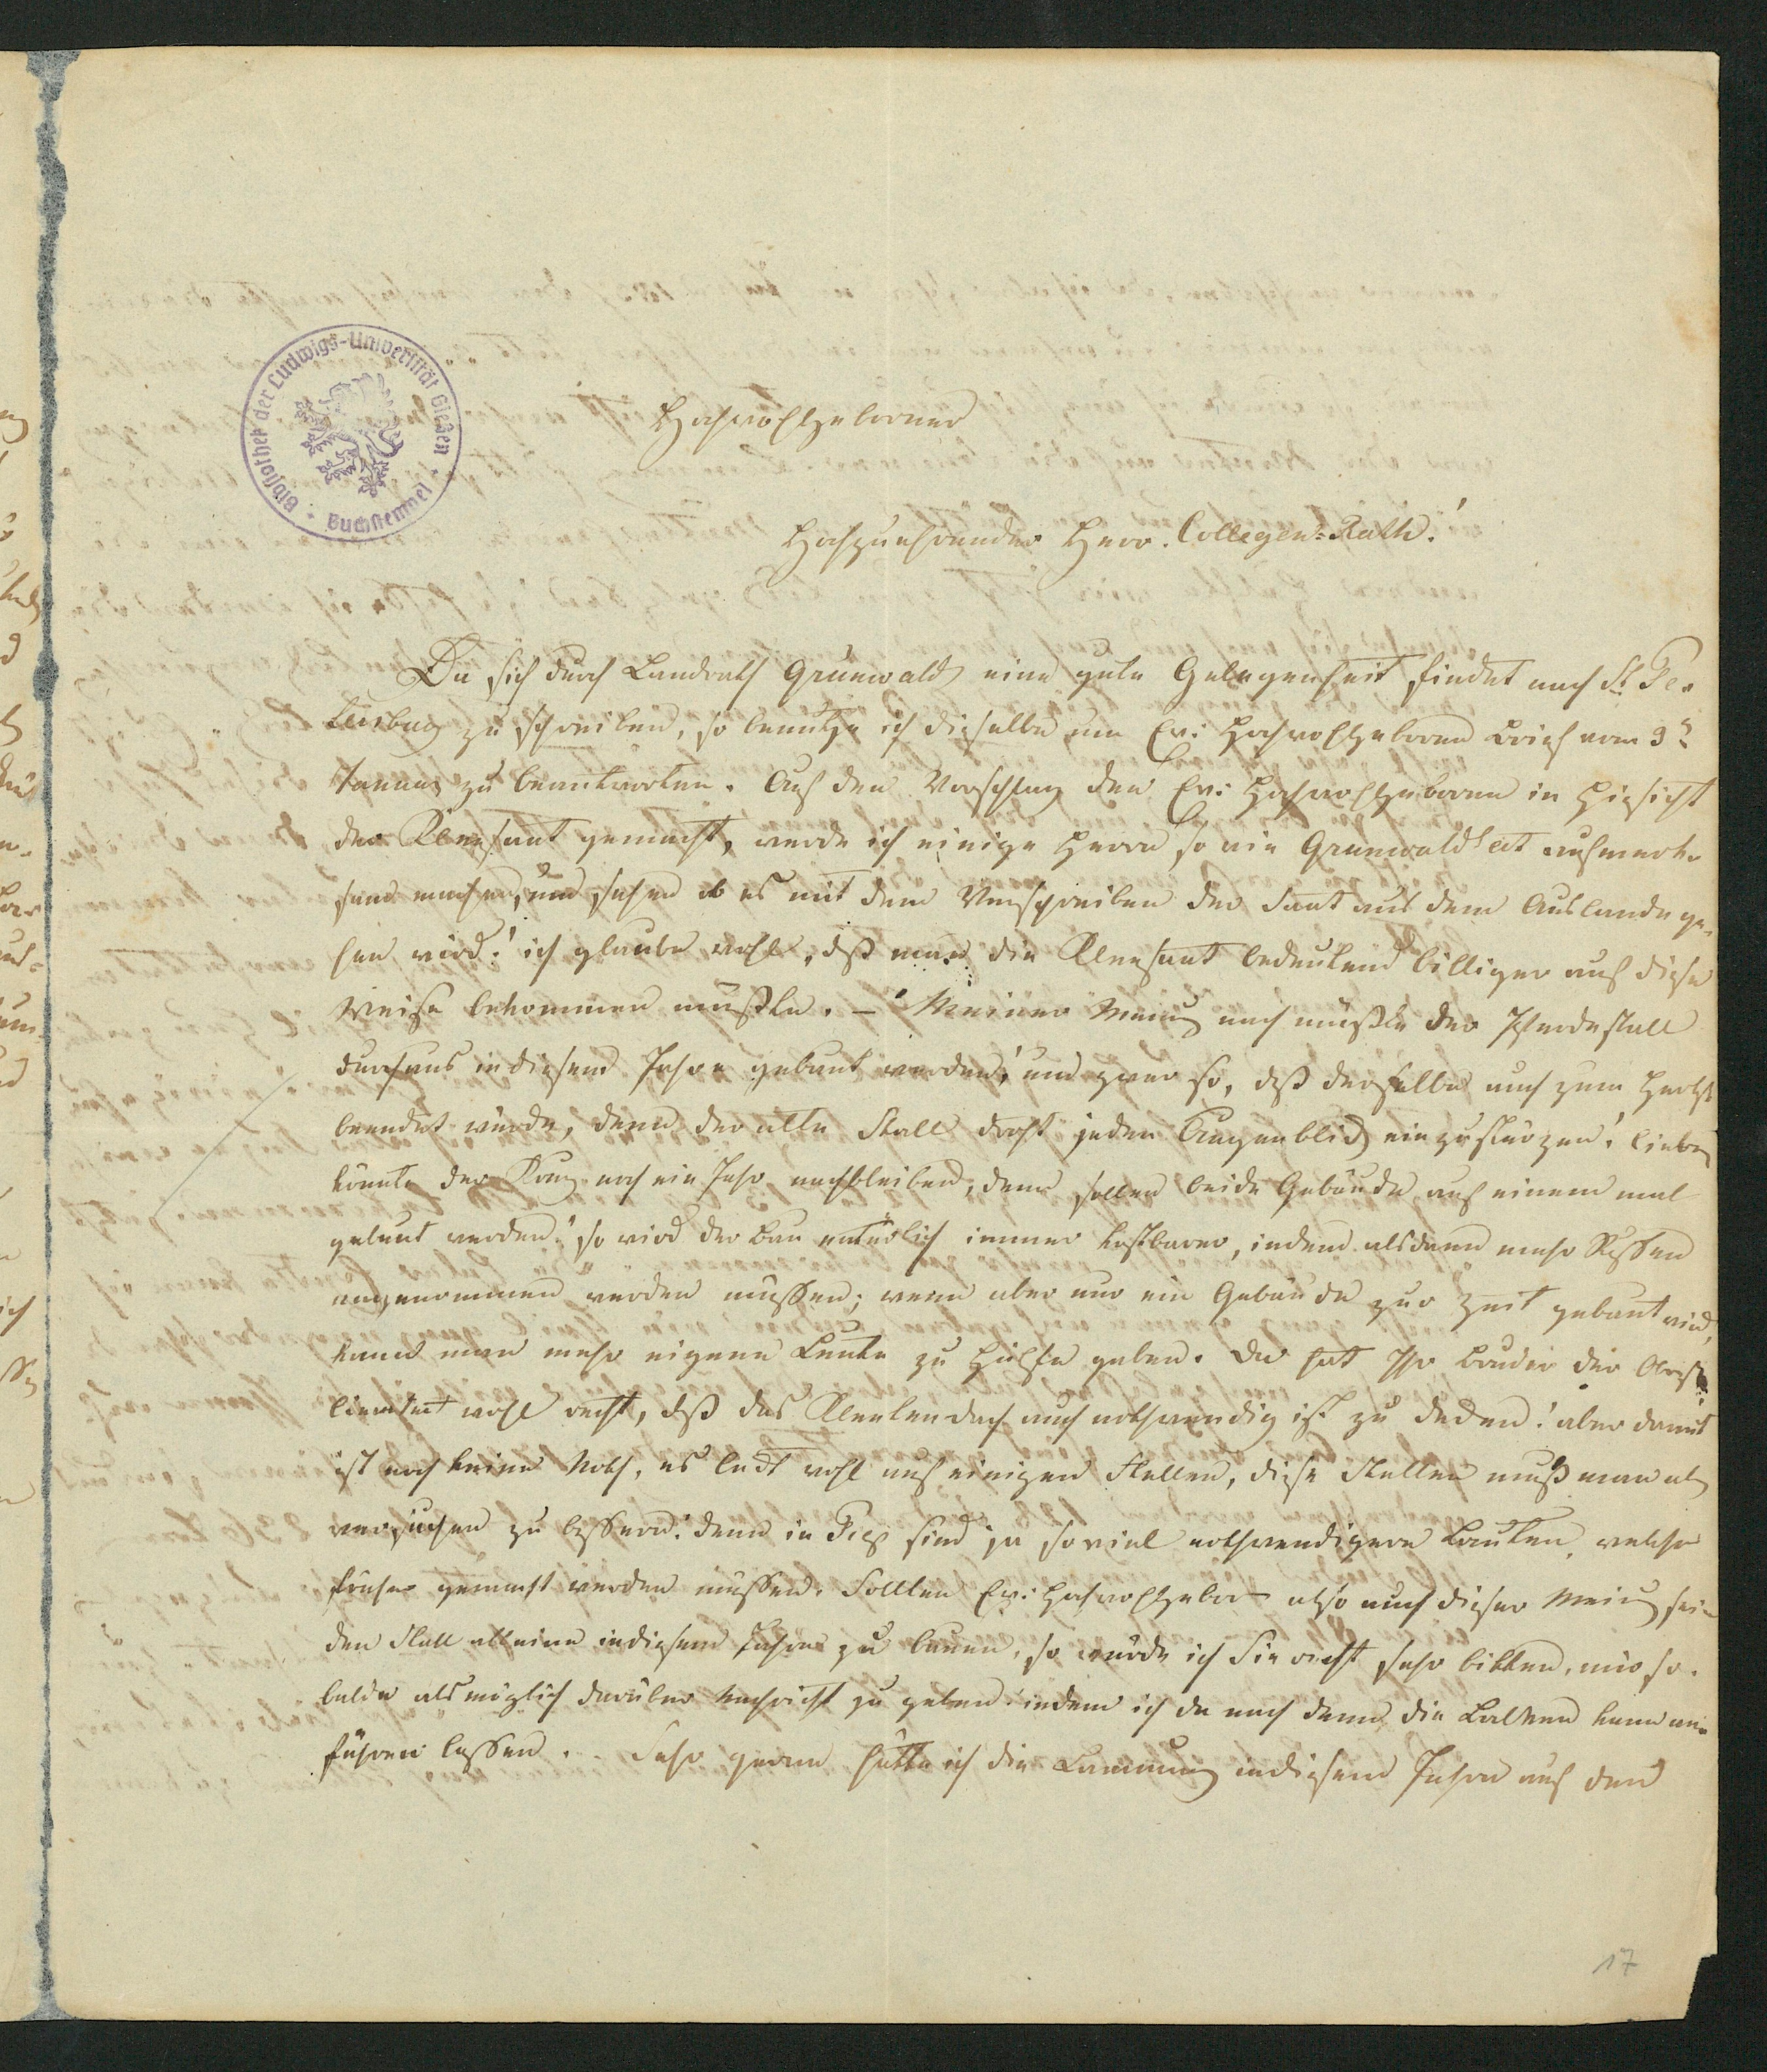 Bibliothek der Ludwigs-Universität Gießen · Buchstempel ·
Hochwohlgeborner
Hochzuehrender Herr Collegen-Rath!
Da sich durch Landrath Grünwald eine gute Gelegenheit findet nach St. Pe-
tersburg zu schreiben, so benutze ich dieselbe um Ew: Hochwohlgeboren Brief vom 9t
Januar zu beantworten. Auf den Vorschlag den Ew: Hochwohlgeboren in Hinsicht
der Kleesaat gemacht, werde ich einige Herrn so wie Grünwaldt aufmerk-
sam machen, und sehen ob es mit dem Verschreiben der Saat aus dem Auslande ge-
hen wird! ich glaube wohl, daß man die Kleesaat bedeutend billiger auf diese
Weise bekommen müßte. – Meiner Meinung nach müßte der Pferdestall
durchaus in diesem Jahre gebaut werden! und zwar so, daß derselbe auch zum Herbst
beendet würde, denn der alte Stall droht jeden Augenblick einzustürzen! lieber
könnte der Krug noch ein Jahr nachbleiben, denn sollen beide Gebäude auf einem mal
gebaut werden! so wird der Bau natürlich immer kostbarer, indem alsdann mehr Russen
angenommen werden müssen; wenn aber nur ein Gebäude zur Zeit gebaut wird,
kann man mehr eigene Leute zu Hülfe geben. Da hat Ihr Bruder der Obrist
lieutnant wohl recht, daß das Kleetendach auch nothwendig ist zu decken! aber damit
ist noch keine Noth, es leckt wohl auf einigen Stellen, diese Stellen muß man
versuchen zu bessern! denn in Piep sind ja so viel nothwendigere Bauten, welche
früher gemacht werden müssen. Sollten Ew: Hochwohlgebor also auch dieser Meinung sein
den Stall alleine in diesem Jahre zu bauen, so würde ich Sie recht sehr bitten, mir so-
balde als möglich darüber Nachricht zu geben! indem ich da nach dann die Balken kann an-
führen lassen. – Sehr gerne hätte ich die in diesem Jahre auf den
17